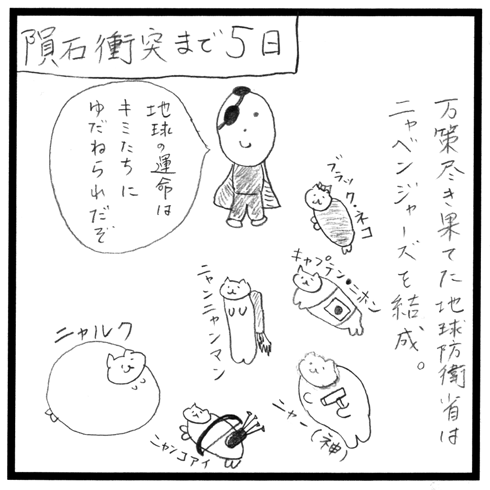 隕石衝突まで5日
万策尽き果てた地球防衛省は
ニャベンジャーズを結成。
地球の運命は
キミたちに
ゆだねられたぞ
ブラック・ネコ
キャプテン・ニホン
ニャンニャンマン
ニャルク
ニャー(神)
ニャンコアイ